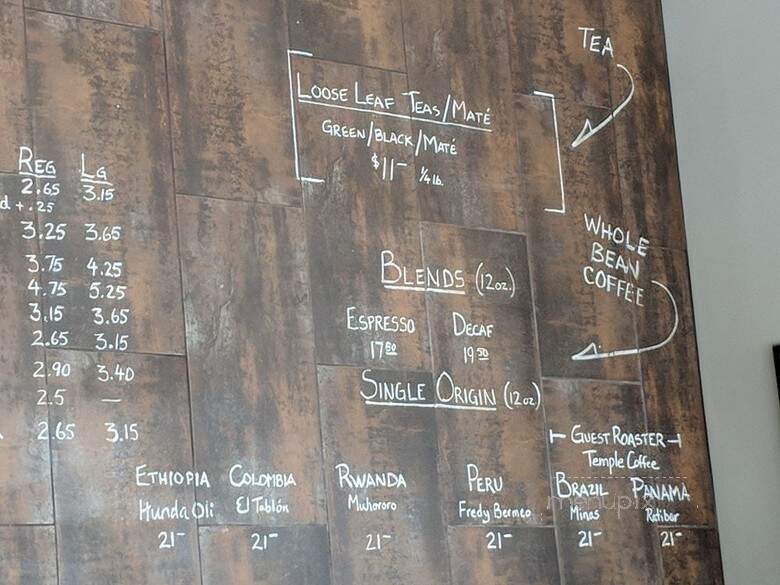 TEA
LOOSE LEAF TEAS/MATÉ
GREEN/BLACK/MATÉ
$11- 1/4 lb.
REG LG
2.65 3.15
d + .25
3.25 3.65
3.75 4.25
4.75 5.25
3.15 3.65
2.65 3.15
2.90 3.40
2.5 —
2.65 3.15
WHOLE
BEAN
COFFEE
BLENDS (12oz.)
ESPRESSO DECAF
17 50 19 50
SINGLE ORIGIN (12oz)
GUEST ROASTER
Temple Coffee
ETHIOPIA COLOMBIA RWANDA PERU BRAZIL PANAMA
Hunda Oli El Tablón Muhororo Fredy Bermeo Minas Ratibor
21- 21- 21- 21- 21- 21-